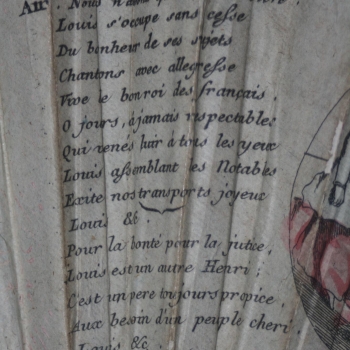 Air. Nous n'
Louis s'occupe sans cesse
Du bonheur de ses sujets
Chantons avec allegresse
Vive le bon roi des français.
O jours, à jamais respectables
Qui renés luir à tous les yeux
Louis assemblant les Notables
Exite nos transports joyeux
Louis &c.
Pour la bonté pour la justice,
Louis est un autre Henri;
C'est un pere toujours propice,
Aux besoin d'un peuple cheri
Louis &c.